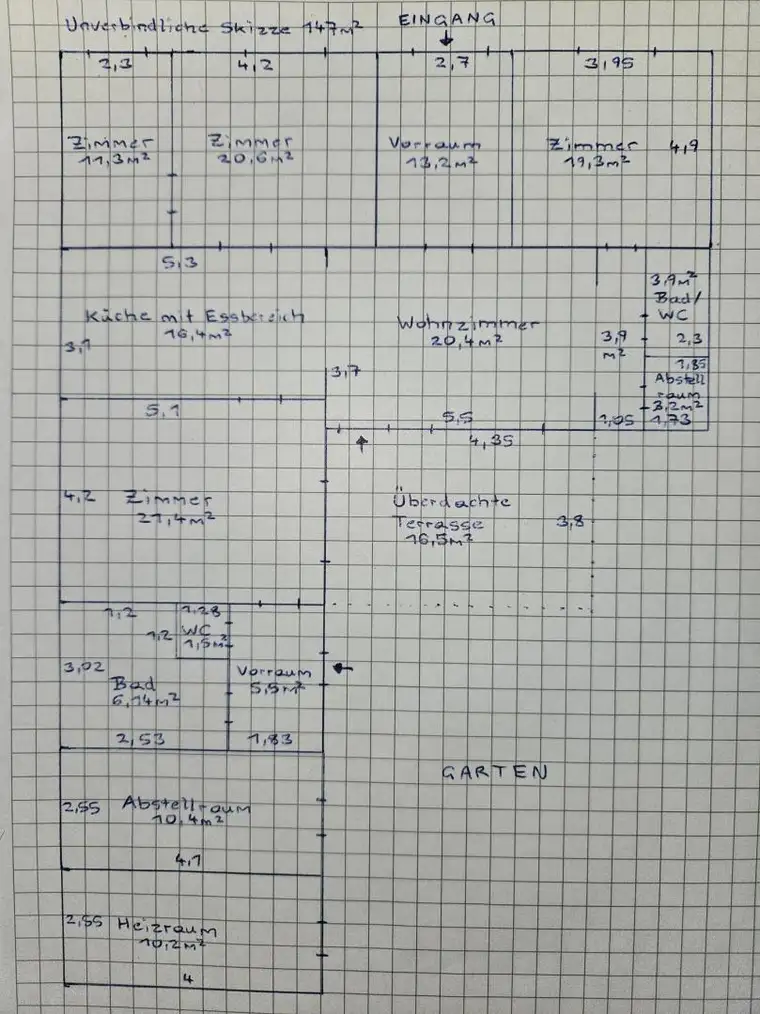 Unverbindliche Skizze 147m²
EINGANG
2,3
4,2
2,7
3,95
Zimmer
11,3m²
Zimmer
20,6m²
Vorraum
13,2m²
Zimmer
19,3m²
4,9
5,3
Küche mit Essbereich
16,4m²
3,1
Wohnzimmer
20,4m²
3,7
5,5
3,9
m²
1,05
3,9m²
Bad/
WC
2,3
1,85
Abstell
raum
3,2m²
1,73
5,1
4,35
4,2
Zimmer
21,4m²
Überdachte
Terrasse
16,5m²
3,8
1,2
1,28
1,2
WC
1,5m²
3,02
Bad
6,14m²
2,53
Vorraum
5,5m²
1,83
GARTEN
2,55
Abstellraum
10,4m²
4,1
2,55
Heizraum
10,2m²
4